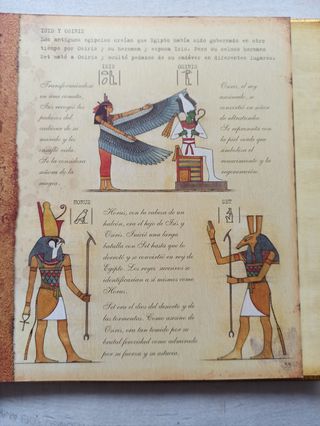 ISIS Y OSIRIS
Los antiguos egipcios creían que Egipto había sido gobernado en otro
tiempo por Osiris y su hermana y esposa Isis. Pero su celoso hermano
Set mató a Osiris y ocultó pedazos de su cadáver en diferentes lugares.
ISIS
OSIRIS
Transformándose
en una cometa,
Isis recogió los
pedazos del
cadáver de su
marido y les
insufló vida.
Se la considera
señora de la
magia.
Osiris, el rey
asesinado, se
convirtió en señor
de ultratumba.
Se representa con
la piel verde que
simboliza el
renacimiento y la
regeneración.
HORUS
SET
Horus, con la cabeza de un
halcón, era el hijo de Isis y
Osiris. Inició una larga
batalla con Set hasta que lo
derrotó y se convirtió en rey de
Egipto. Los reyes sucesivos se
identificarían a sí mismos como
Horus.
Set era el dios del desierto y de
las tormentas. Como asesino de
Osiris, era tan temido por su
brutal ferocidad como admirado
por su fuerza y su astucia.